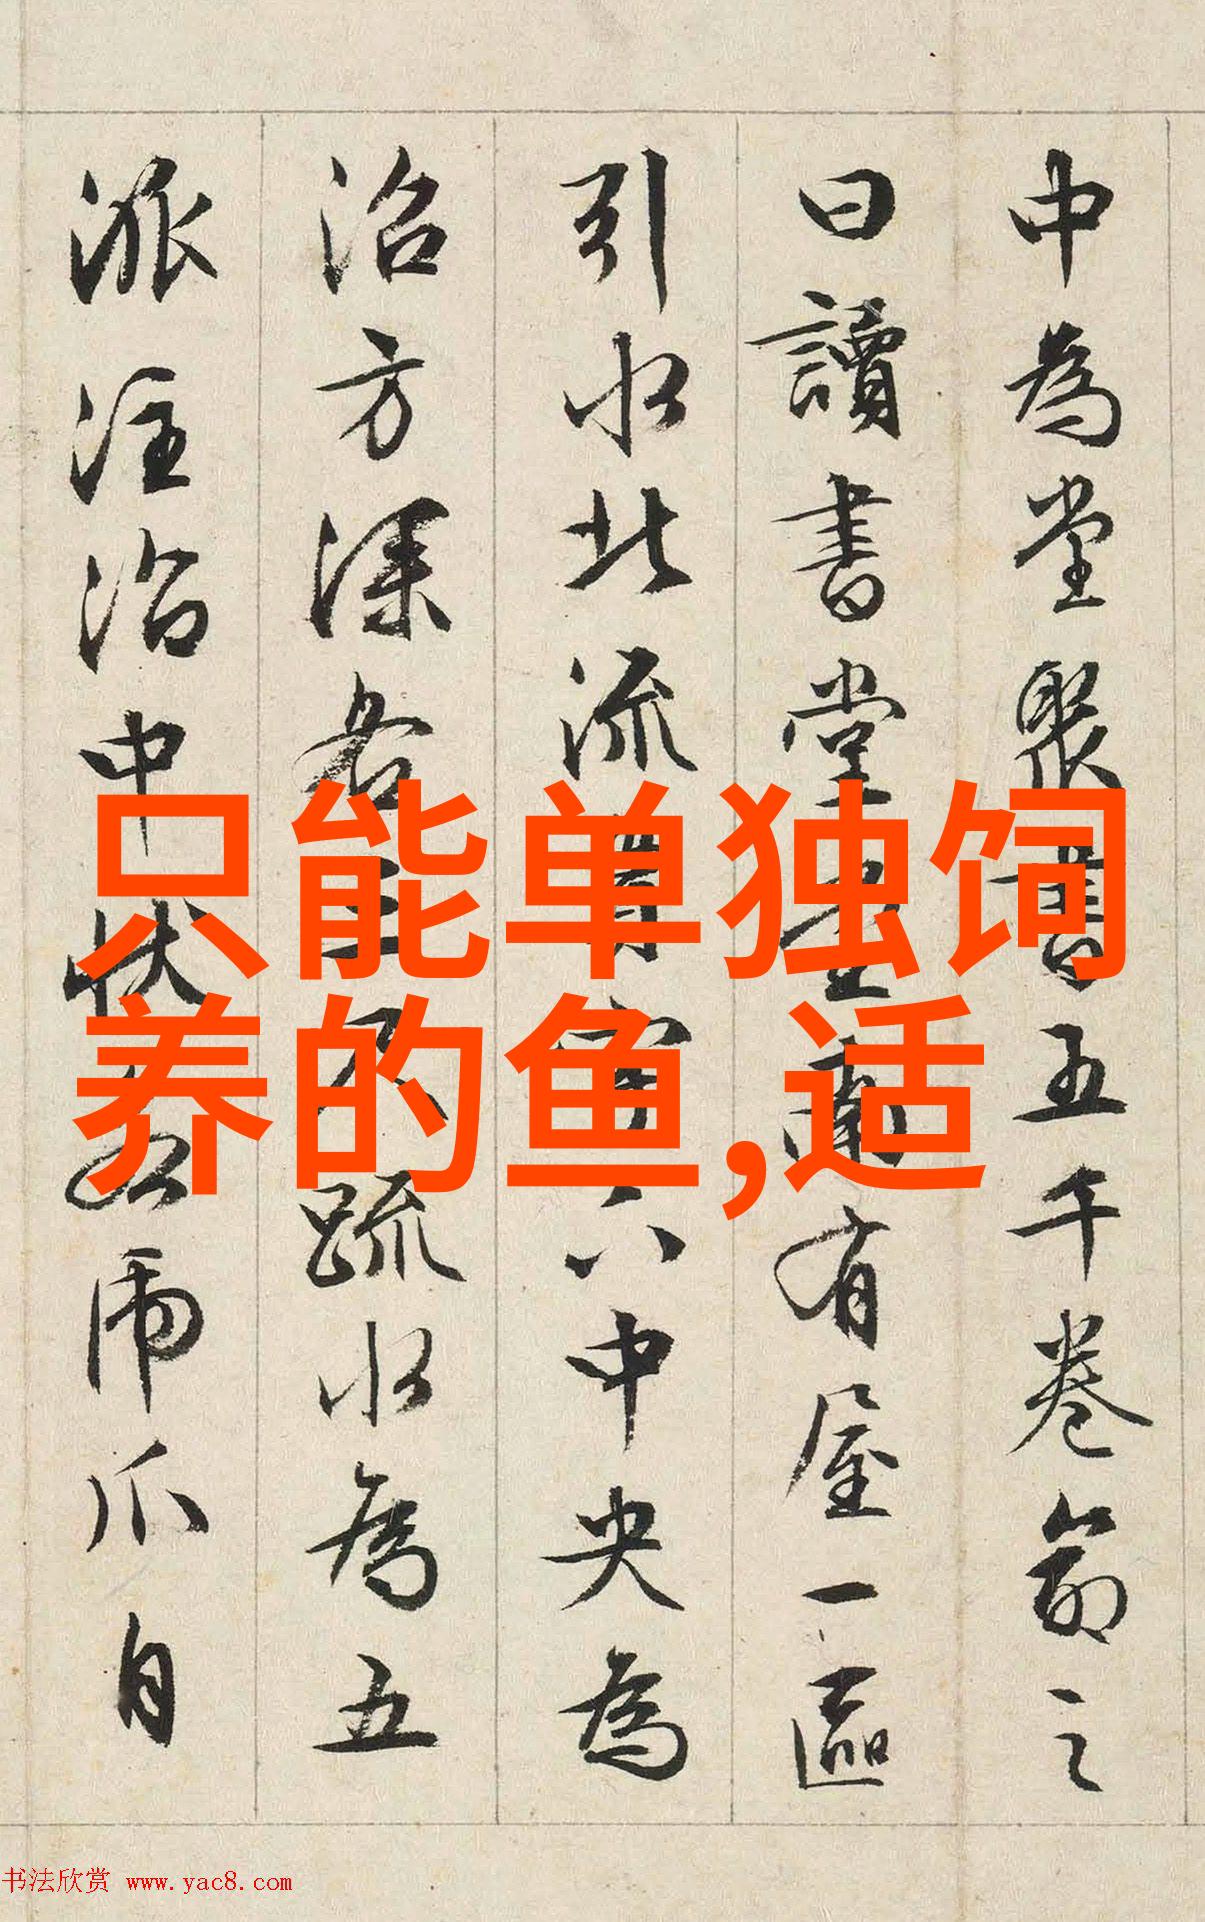 中為堂聚書五千卷命之
曰讀書堂堂南有屋一區
引水北流貫宇下中央為
沼方深各三尺疏水為五
派注沼中狀如虎爪自
只能单独饲
养的鱼,适
书法欣赏 www.yac8.com